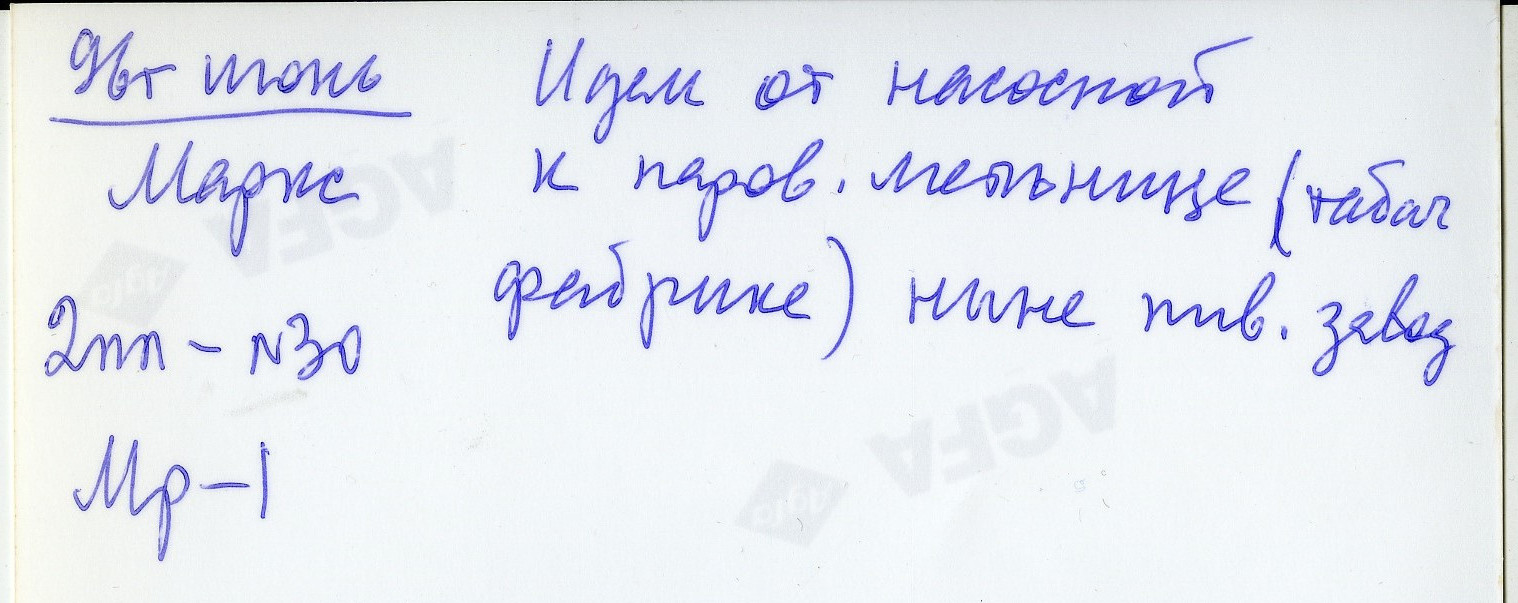 96г июнь
Маркс
2пп - N30
Мр-1
Идем от насосной
к паров. мельнице (табач
фабрике) ныне пив. завод
AGFA
AGFA